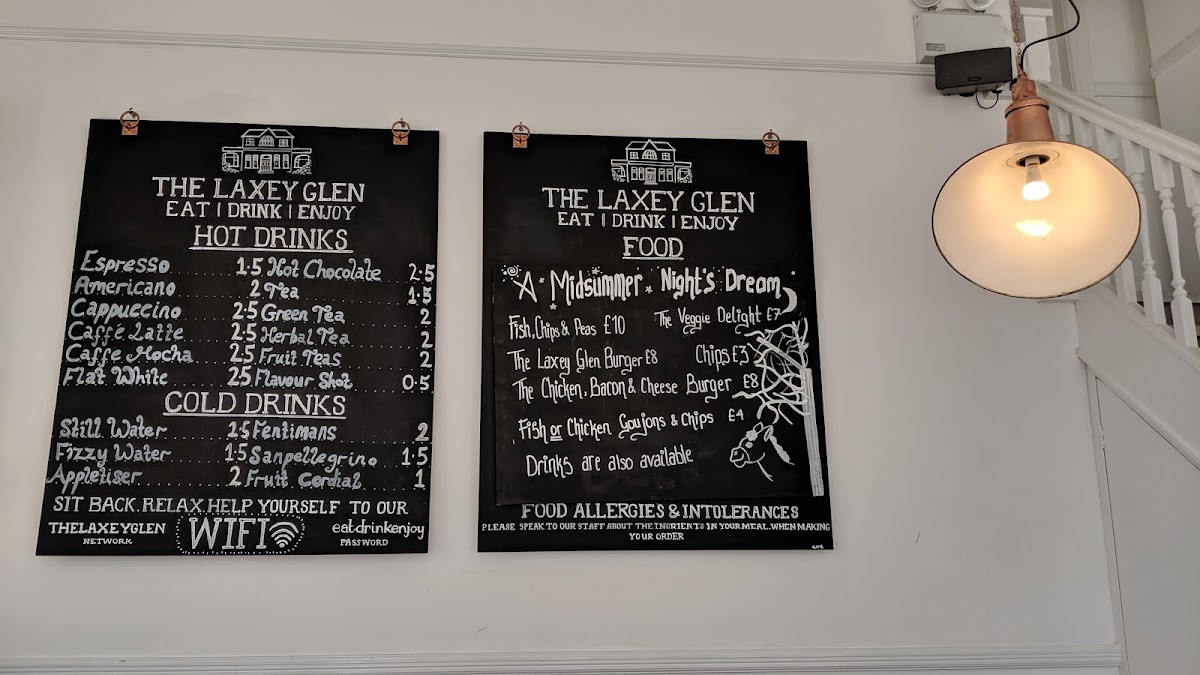 THE LAXEY GLEN
EAT | DRINK | ENJOY
HOT DRINKS
Espresso 1.5 Hot Chocolate 2.5
Americano 2 Tea 1.5
Cappuccino 2.5 Green Tea 2
Caffé Latte 2.5 Herbal Tea 2
Caffe Mocha 2.5 Fruit Teas 2
Flat White 25 Flavour Shot 0.5
COLD DRINKS
Still Water 1.5 Fentimans 2
Fizzy Water 1.5 Sanpellegrino 1.5
Appletiser 2 Fruit Cordial 1
SIT BACK. RELAX. HELP YOURSELF TO OUR
THELAXEYGLEN WIFI eatdrinkenjoy
NETWORK PASSWORD
THE LAXEY GLEN
EAT | DRINK | ENJOY
FOOD
A Midsummer Night's Dream
Fish, Chips & Peas £10 The Veggie Delight £7
The Laxey Glen Burger £8 Chips £3
The Chicken, Bacon & Cheese Burger £8
Fish or Chicken Goujons & Chips £4
Drinks are also available
FOOD ALLERGIES & INTOLERANCES
PLEASE SPEAK TO OUR STAFF ABOUT THE INGRIENTS IN YOUR MEAL. WHEN MAKING
YOUR ORDER